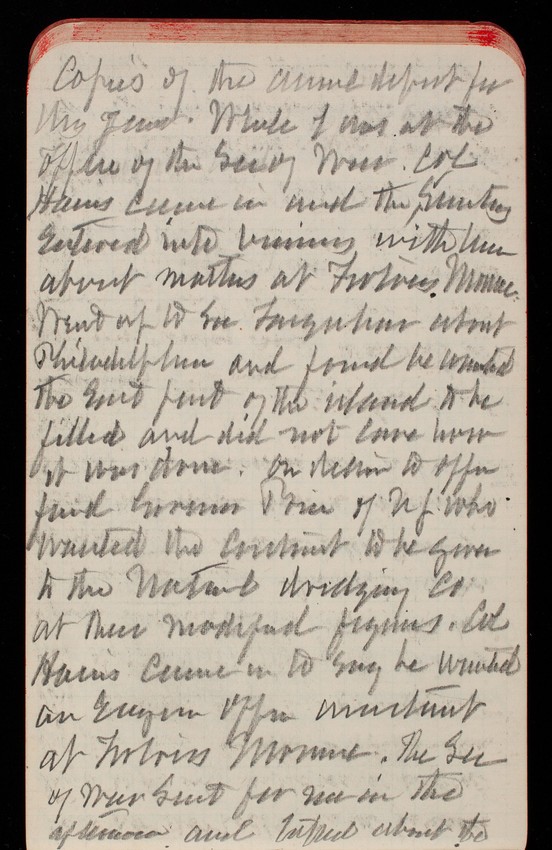 Copies of the annual report for
this year. While I was at the
Office of the Sec of War. Col
Hains came in and the Secretary
Entered into business with him
about matters at Fortress Monroe.
Went up to see Farquhar about
Philadelphia and found he wanted
the East part of the island to be
filled and did not care how
it was done. On return to office
found Governor Price of NJ who
wanted the contract to be given
to the National dredging Co
at their modified figures. Col
Hains came in to say he wanted
an Engineer Officer assistant
at Fortress Monroe. The Sec
of War sent for me in the
afternoon and talked about the